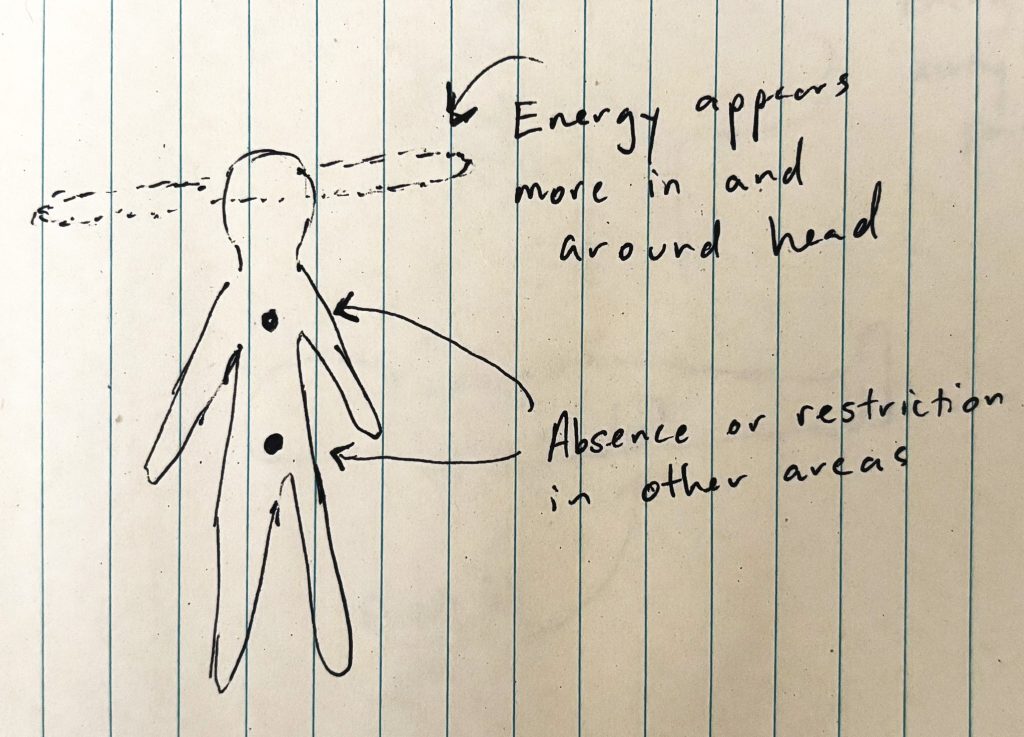 Energy appears
more in and
around head
Absence or restriction
in other areas